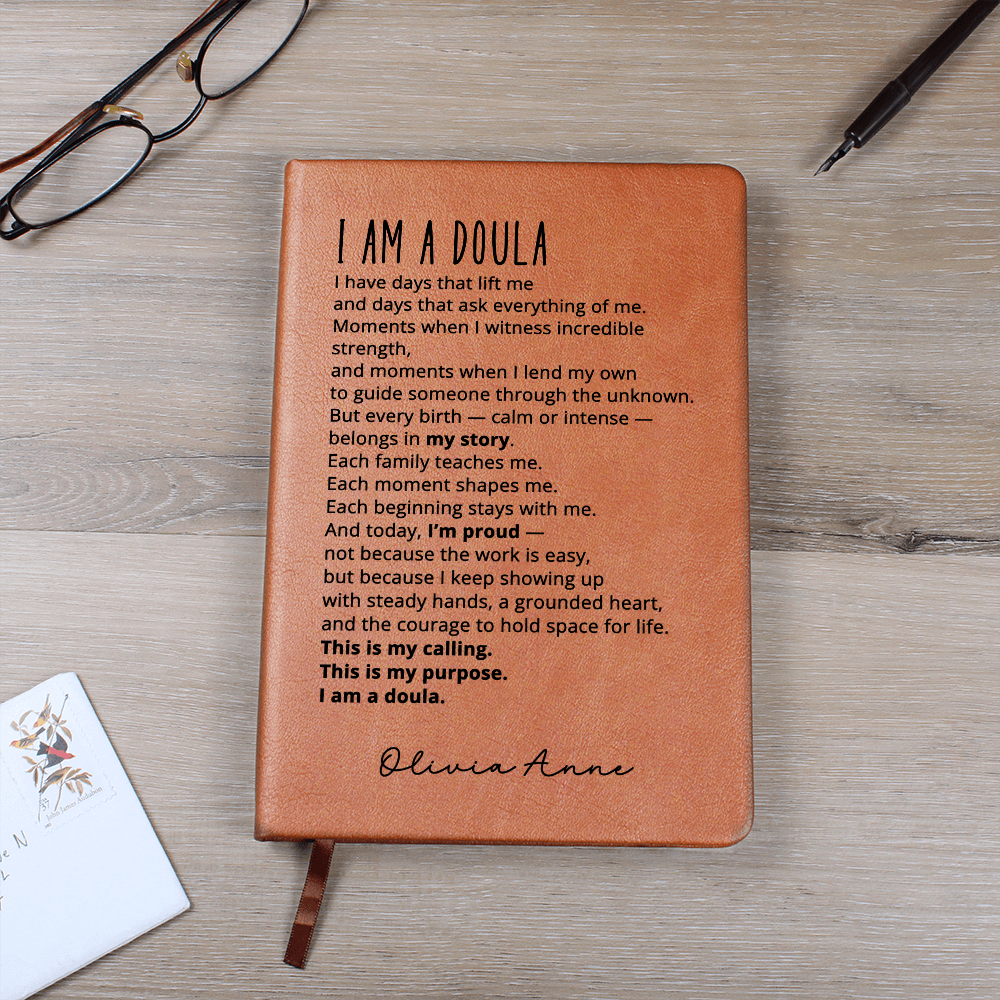 I AM A DOULA
I have days that lift me
and days that ask everything of me.
Moments when I witness incredible
strength,
and moments when I lend my own
to guide someone through the unknown.
But every birth — calm or intense —
belongs in my story.
Each family teaches me.
Each moment shapes me.
Each beginning stays with me.
And today, I’m proud —
not because the work is easy,
but because I keep showing up
with steady hands, a grounded heart,
and the courage to hold space for life.
This is my calling.
This is my purpose.
I am a doula.
Olivia Anne
37
John James Audubon